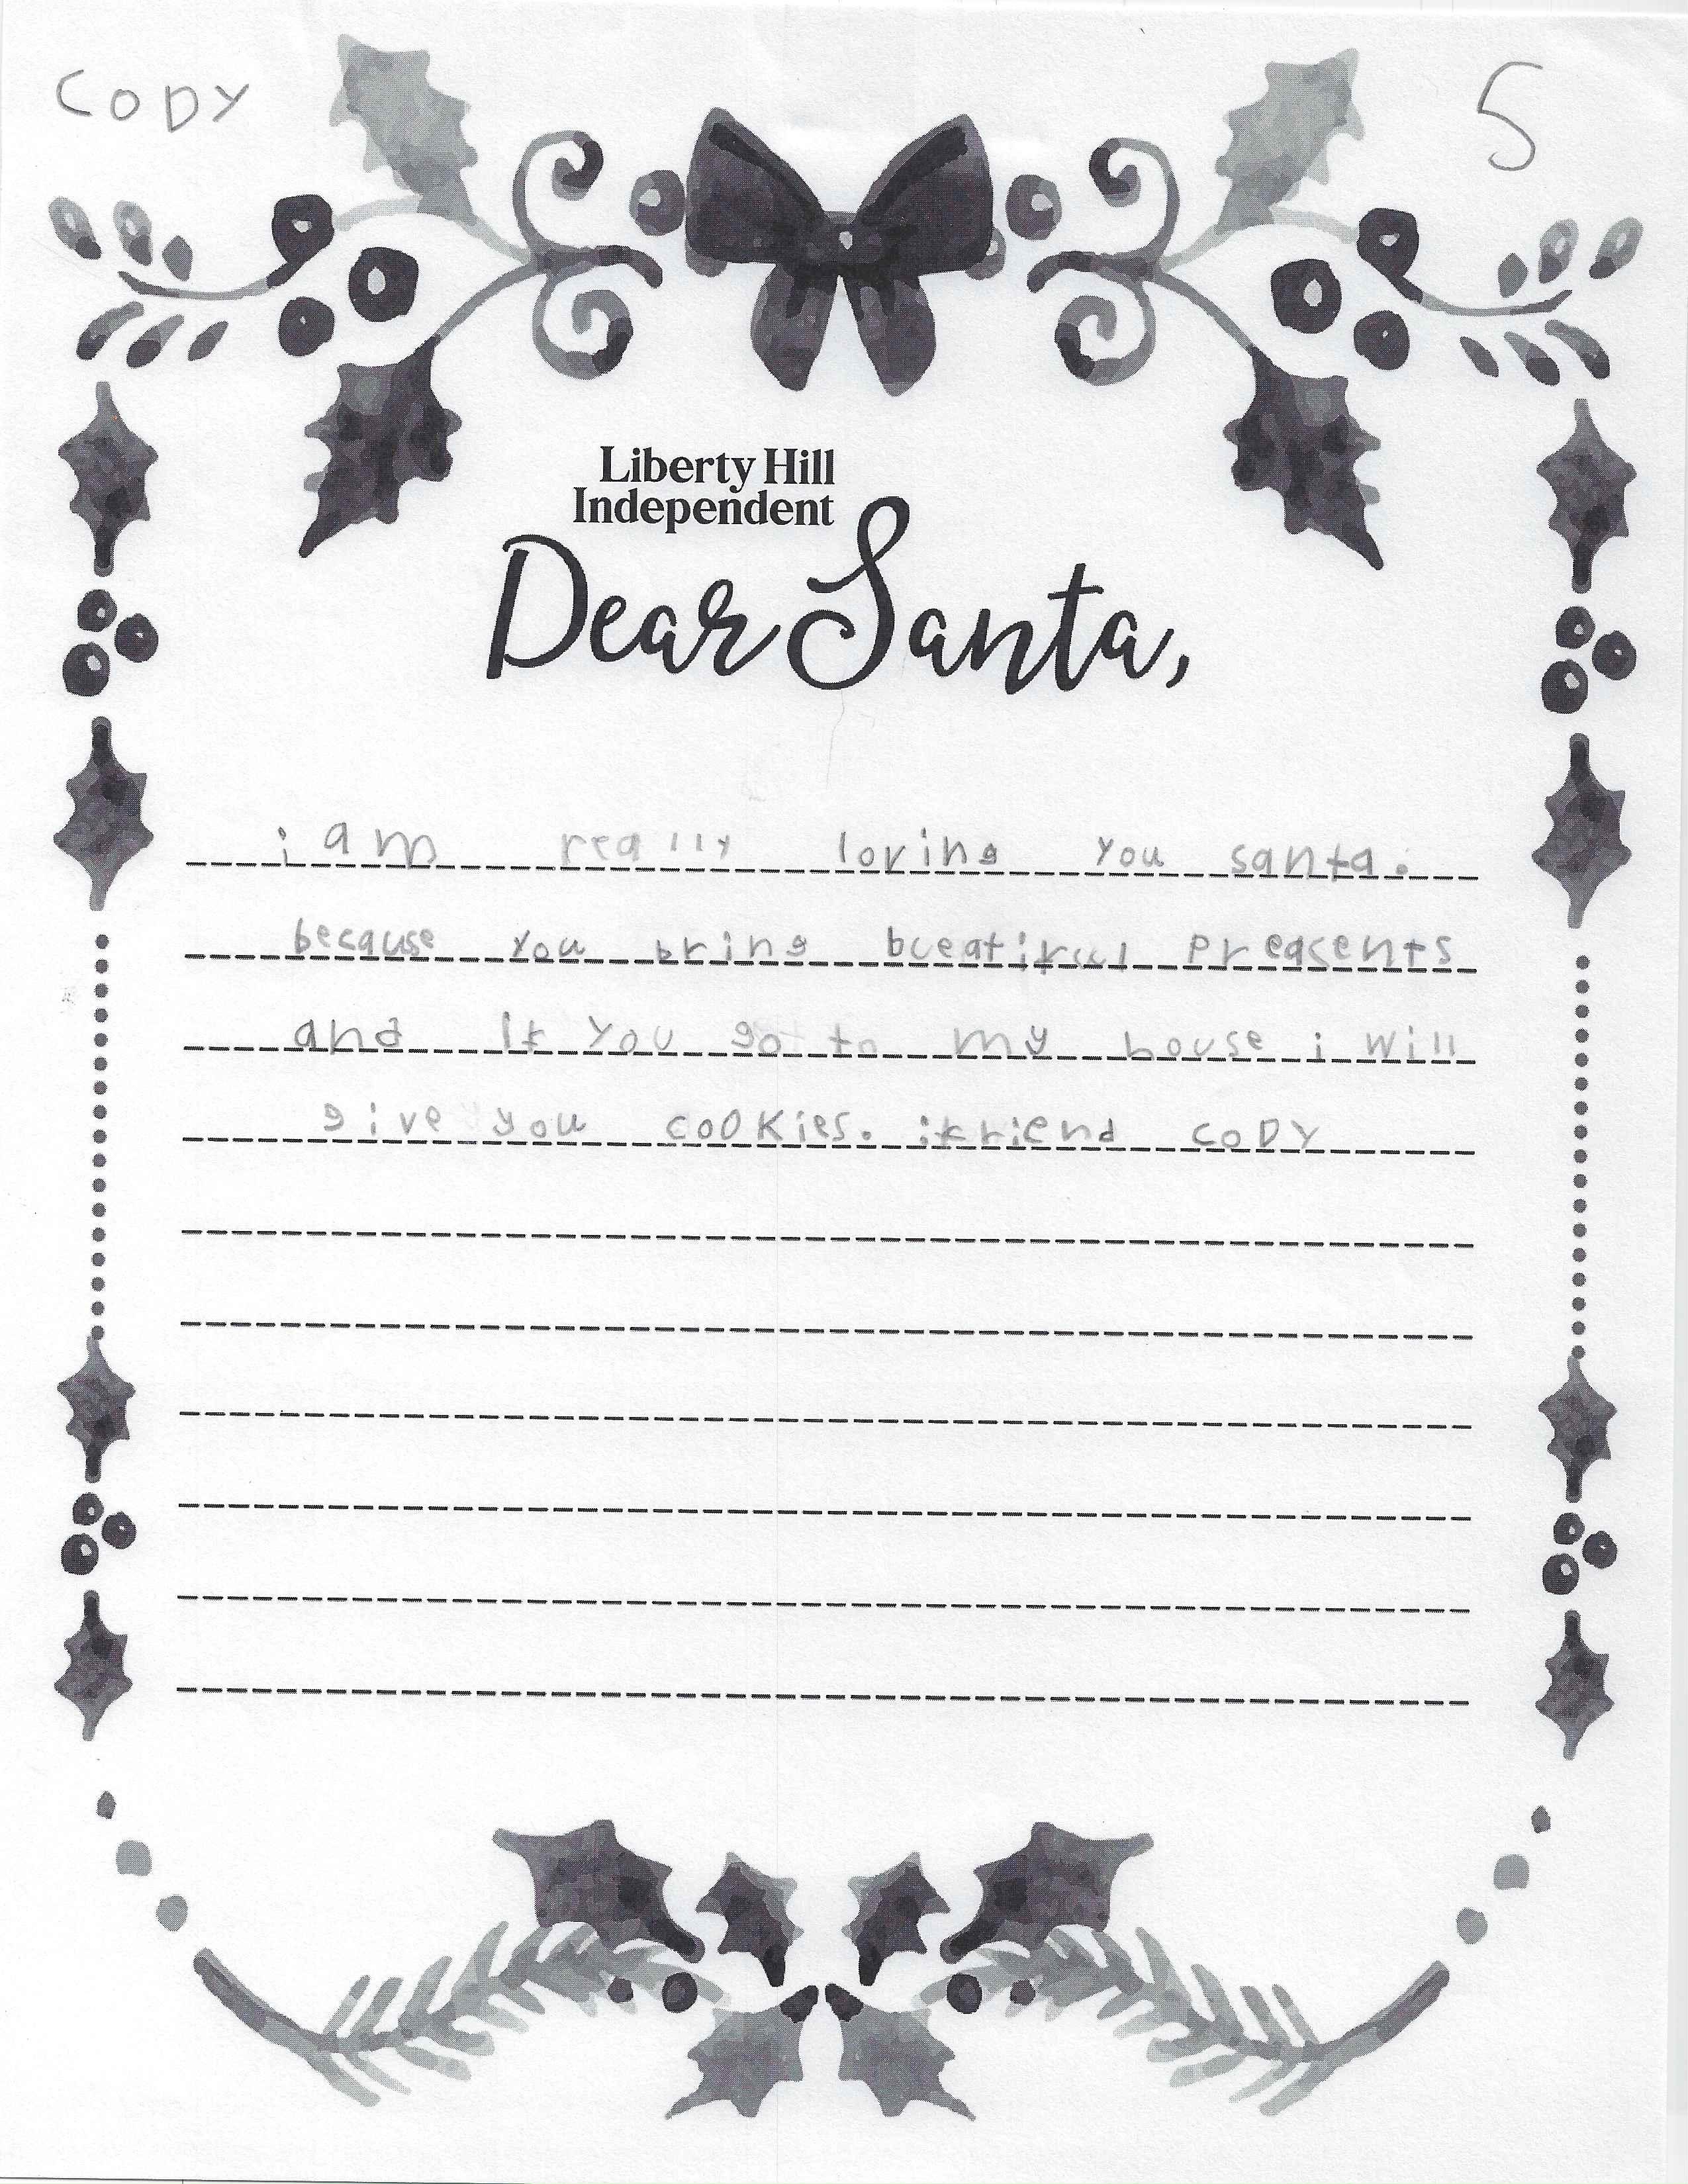 CODY 5
Liberty Hill
Independent
Dear Santa,
i am really loving you santa.
because you bring bueatiful preasents
and If you go to my house i will
give you cookies. friend CODY